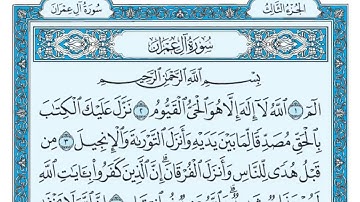 الجزء الثالث
سورة آل عمران
سُورَةُ آلِ عِمْرَانَ
بِسْمِ اللَّهِ الرَّحْمَٰنِ الرَّحِيمِ
الٓمٓ ١ ٱللَّهُ لَآ إِلَٰهَ إِلَّا هُوَ ٱلْحَىُّ ٱلْقَيُّومُ ٢ نَزَّلَ عَلَيْكَ ٱلْكِتَٰبَ
بِٱلْحَقِّ مُصَدِّقًا لِّمَا بَيْنَ يَدَيْهِ وَأَنزَلَ ٱلتَّوْرَىٰةَ وَٱلْإِنجِيلَ ٣ مِن
قَبْلُ هُدًى لِّلنَّاسِ وَأَنزَلَ ٱلْفُرْقَانَ ۗ إِنَّ ٱلَّذِينَ كَفَرُوا۟ بِـَٔايَٰتِ ٱللَّهِ